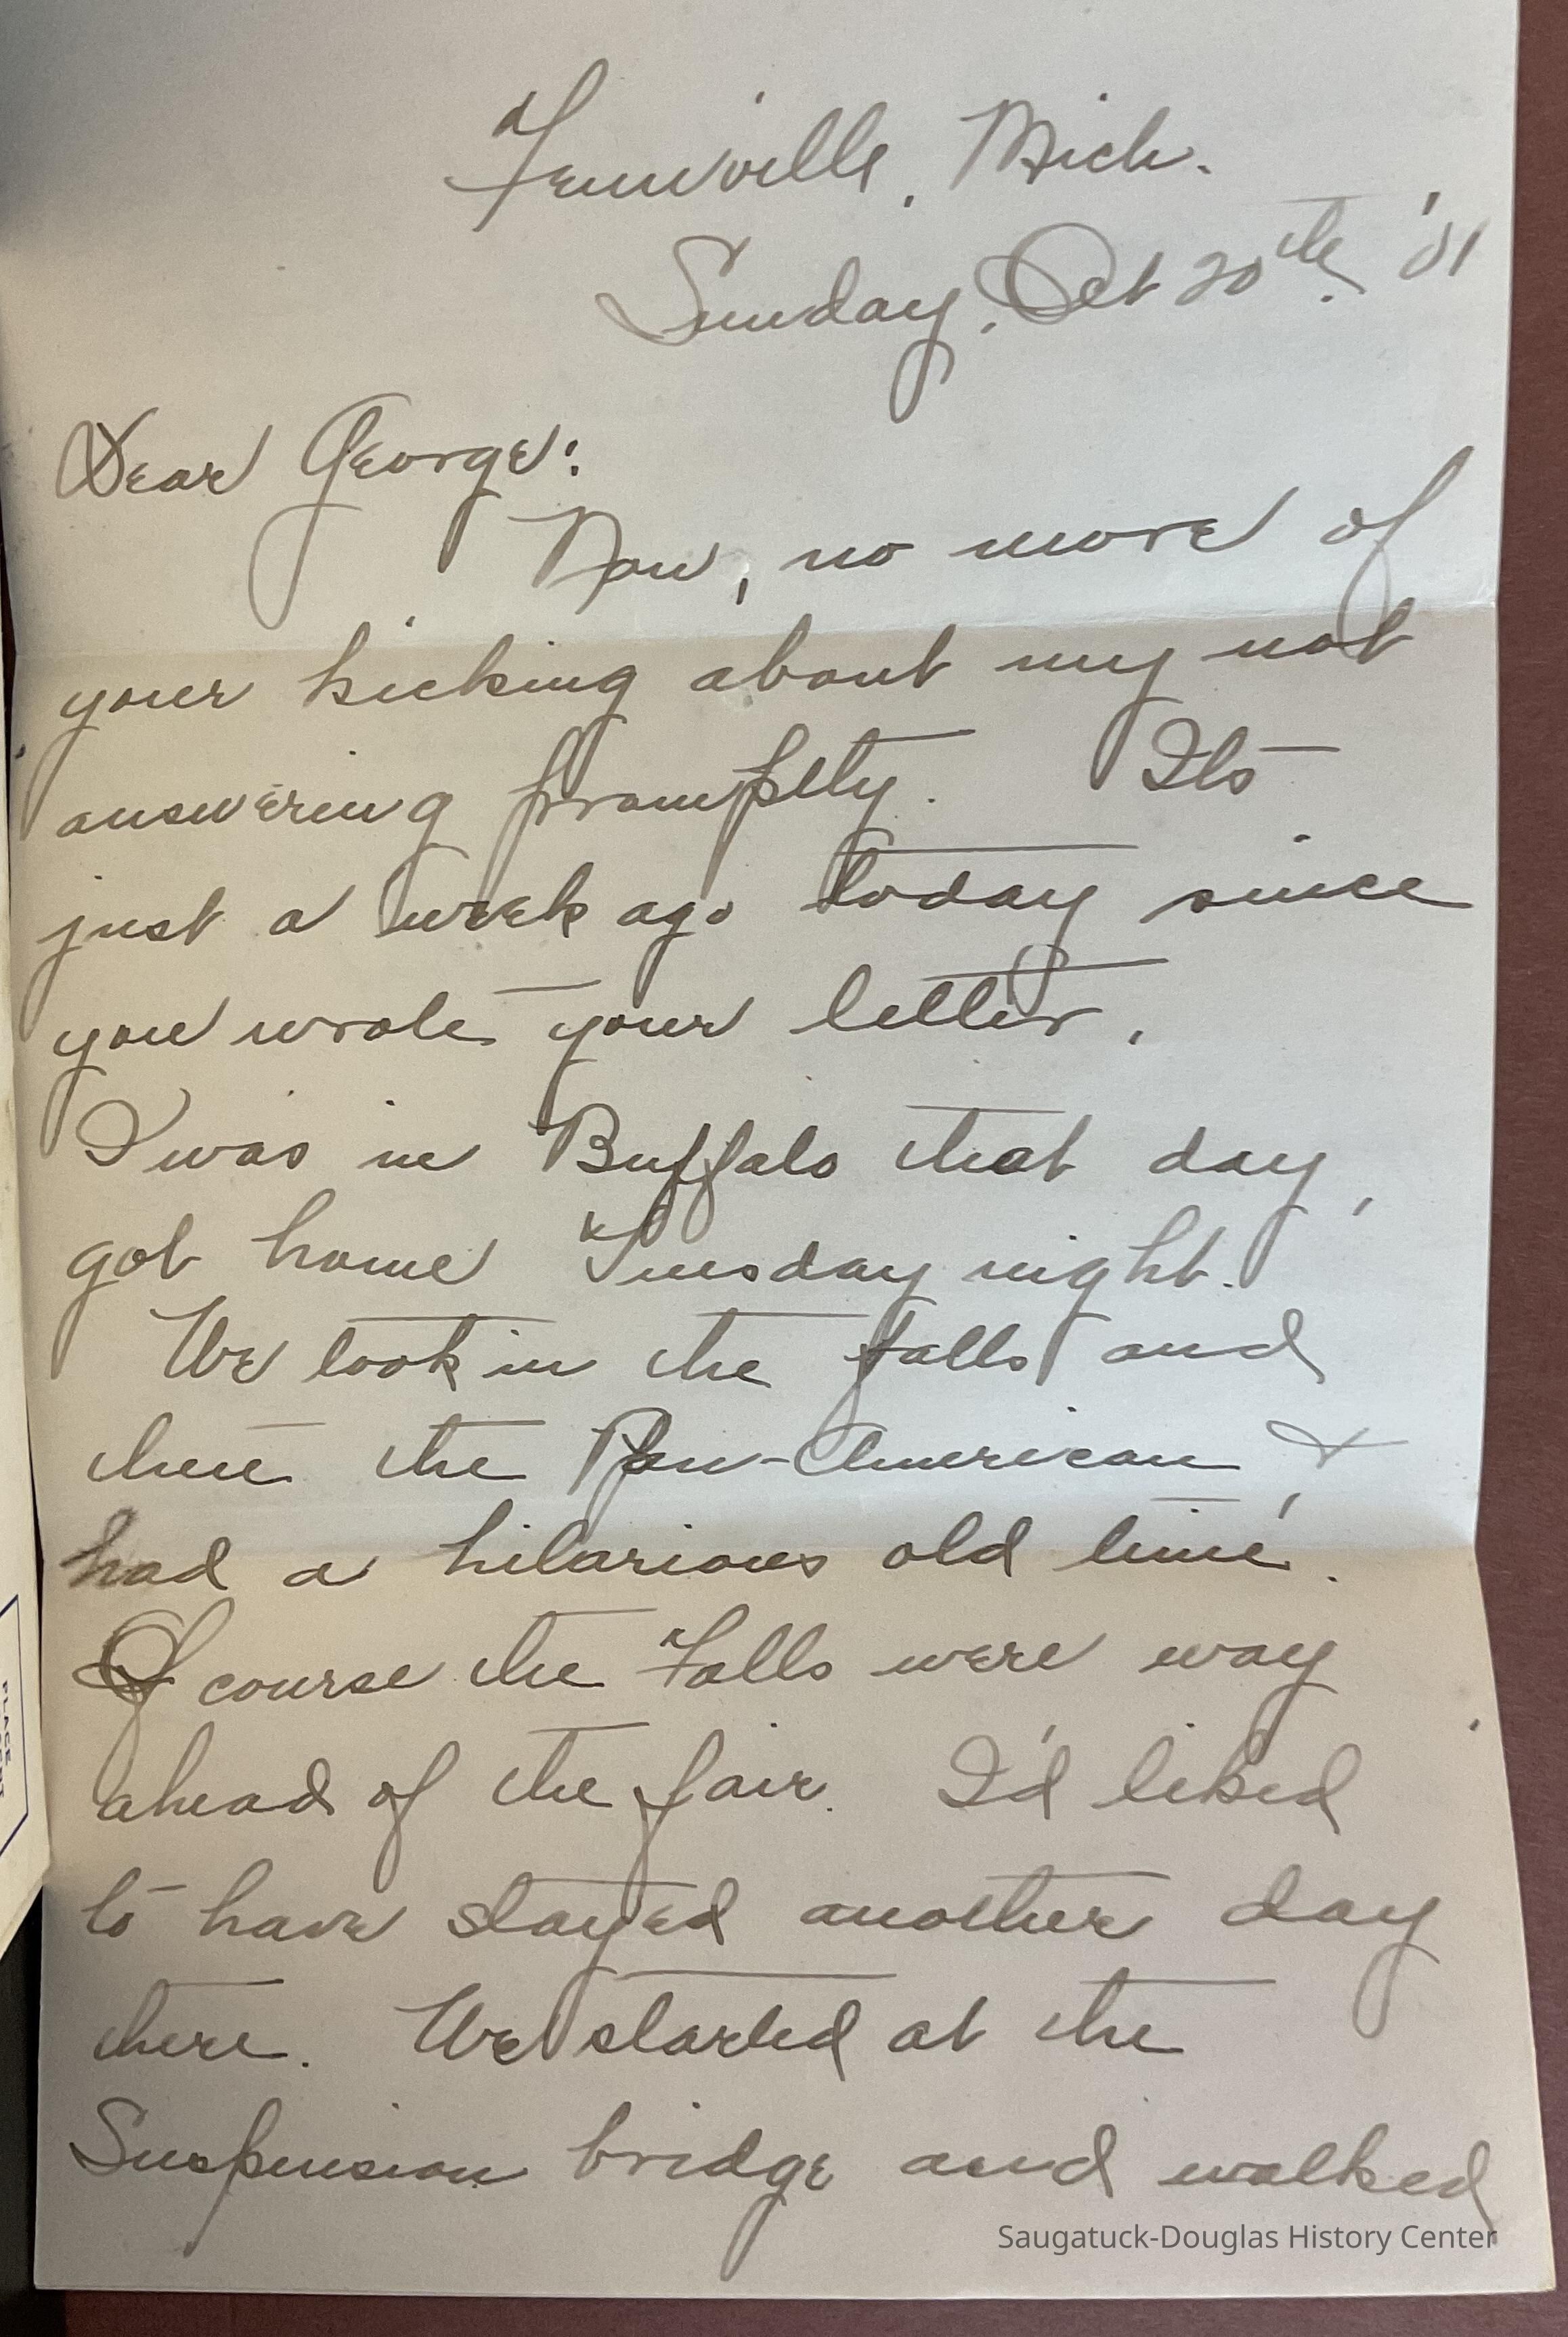 Fennville, Mich.
Sunday, Oct 20th. '01
Dear George:
Now, no more of
your kicking about my not
answering promptly. Its
just a week ago today since
you wrote your letter.
I was in Buffalo that day,
got home Tuesday night.
We took in the falls and
then the Pan-American, &
had a hilarious old time.
Of course the Falls were way
ahead of the fair. I'd liked
to have stayed another day
there. We started at the
Suspension bridge and walked
Saugatuck-Douglas History Center
PLACE